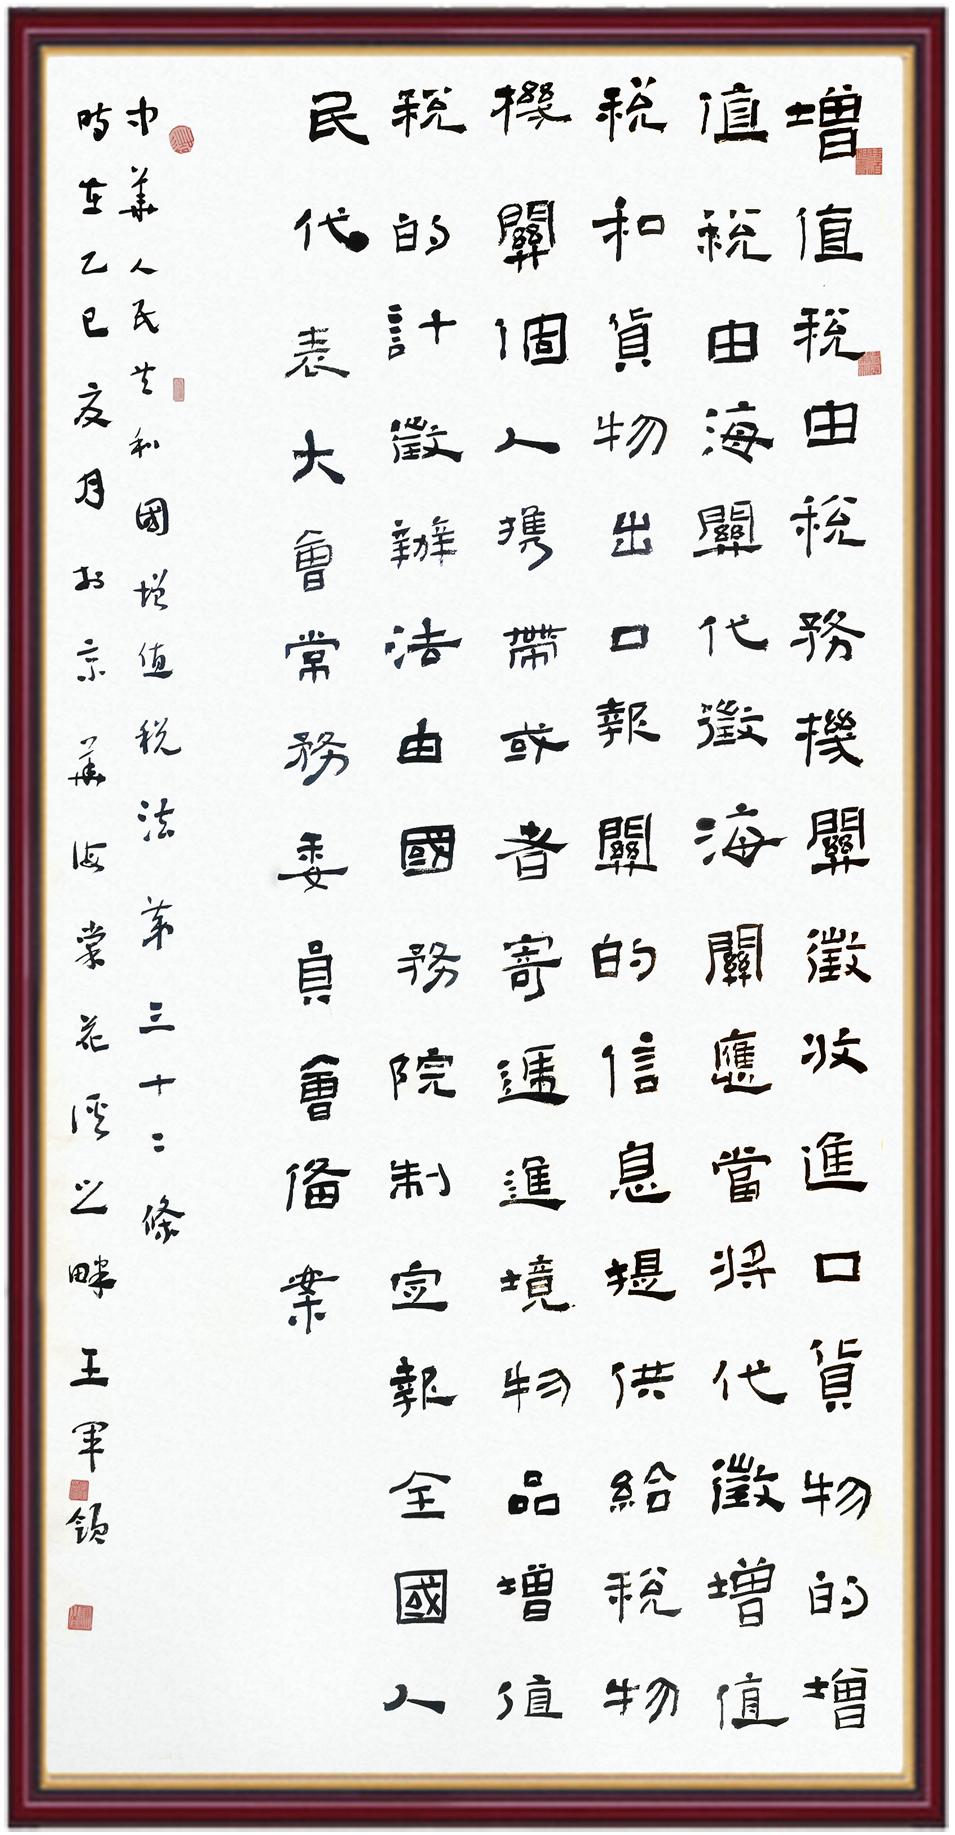 增值稅由稅務機關徵收進口貨物的增
值稅由海關代徵海關應當將代徵增值
稅和貨物出口報關的信息提供給稅物
機關個人携帶或者寄遞進境物品增值
稅的計徵辦法由國務院制定報全國人
民代表大會常務委員會備案
中華人民共和國增值税法第三十二條
時在乙巳夏月於京華海棠花溪之畔王軍領